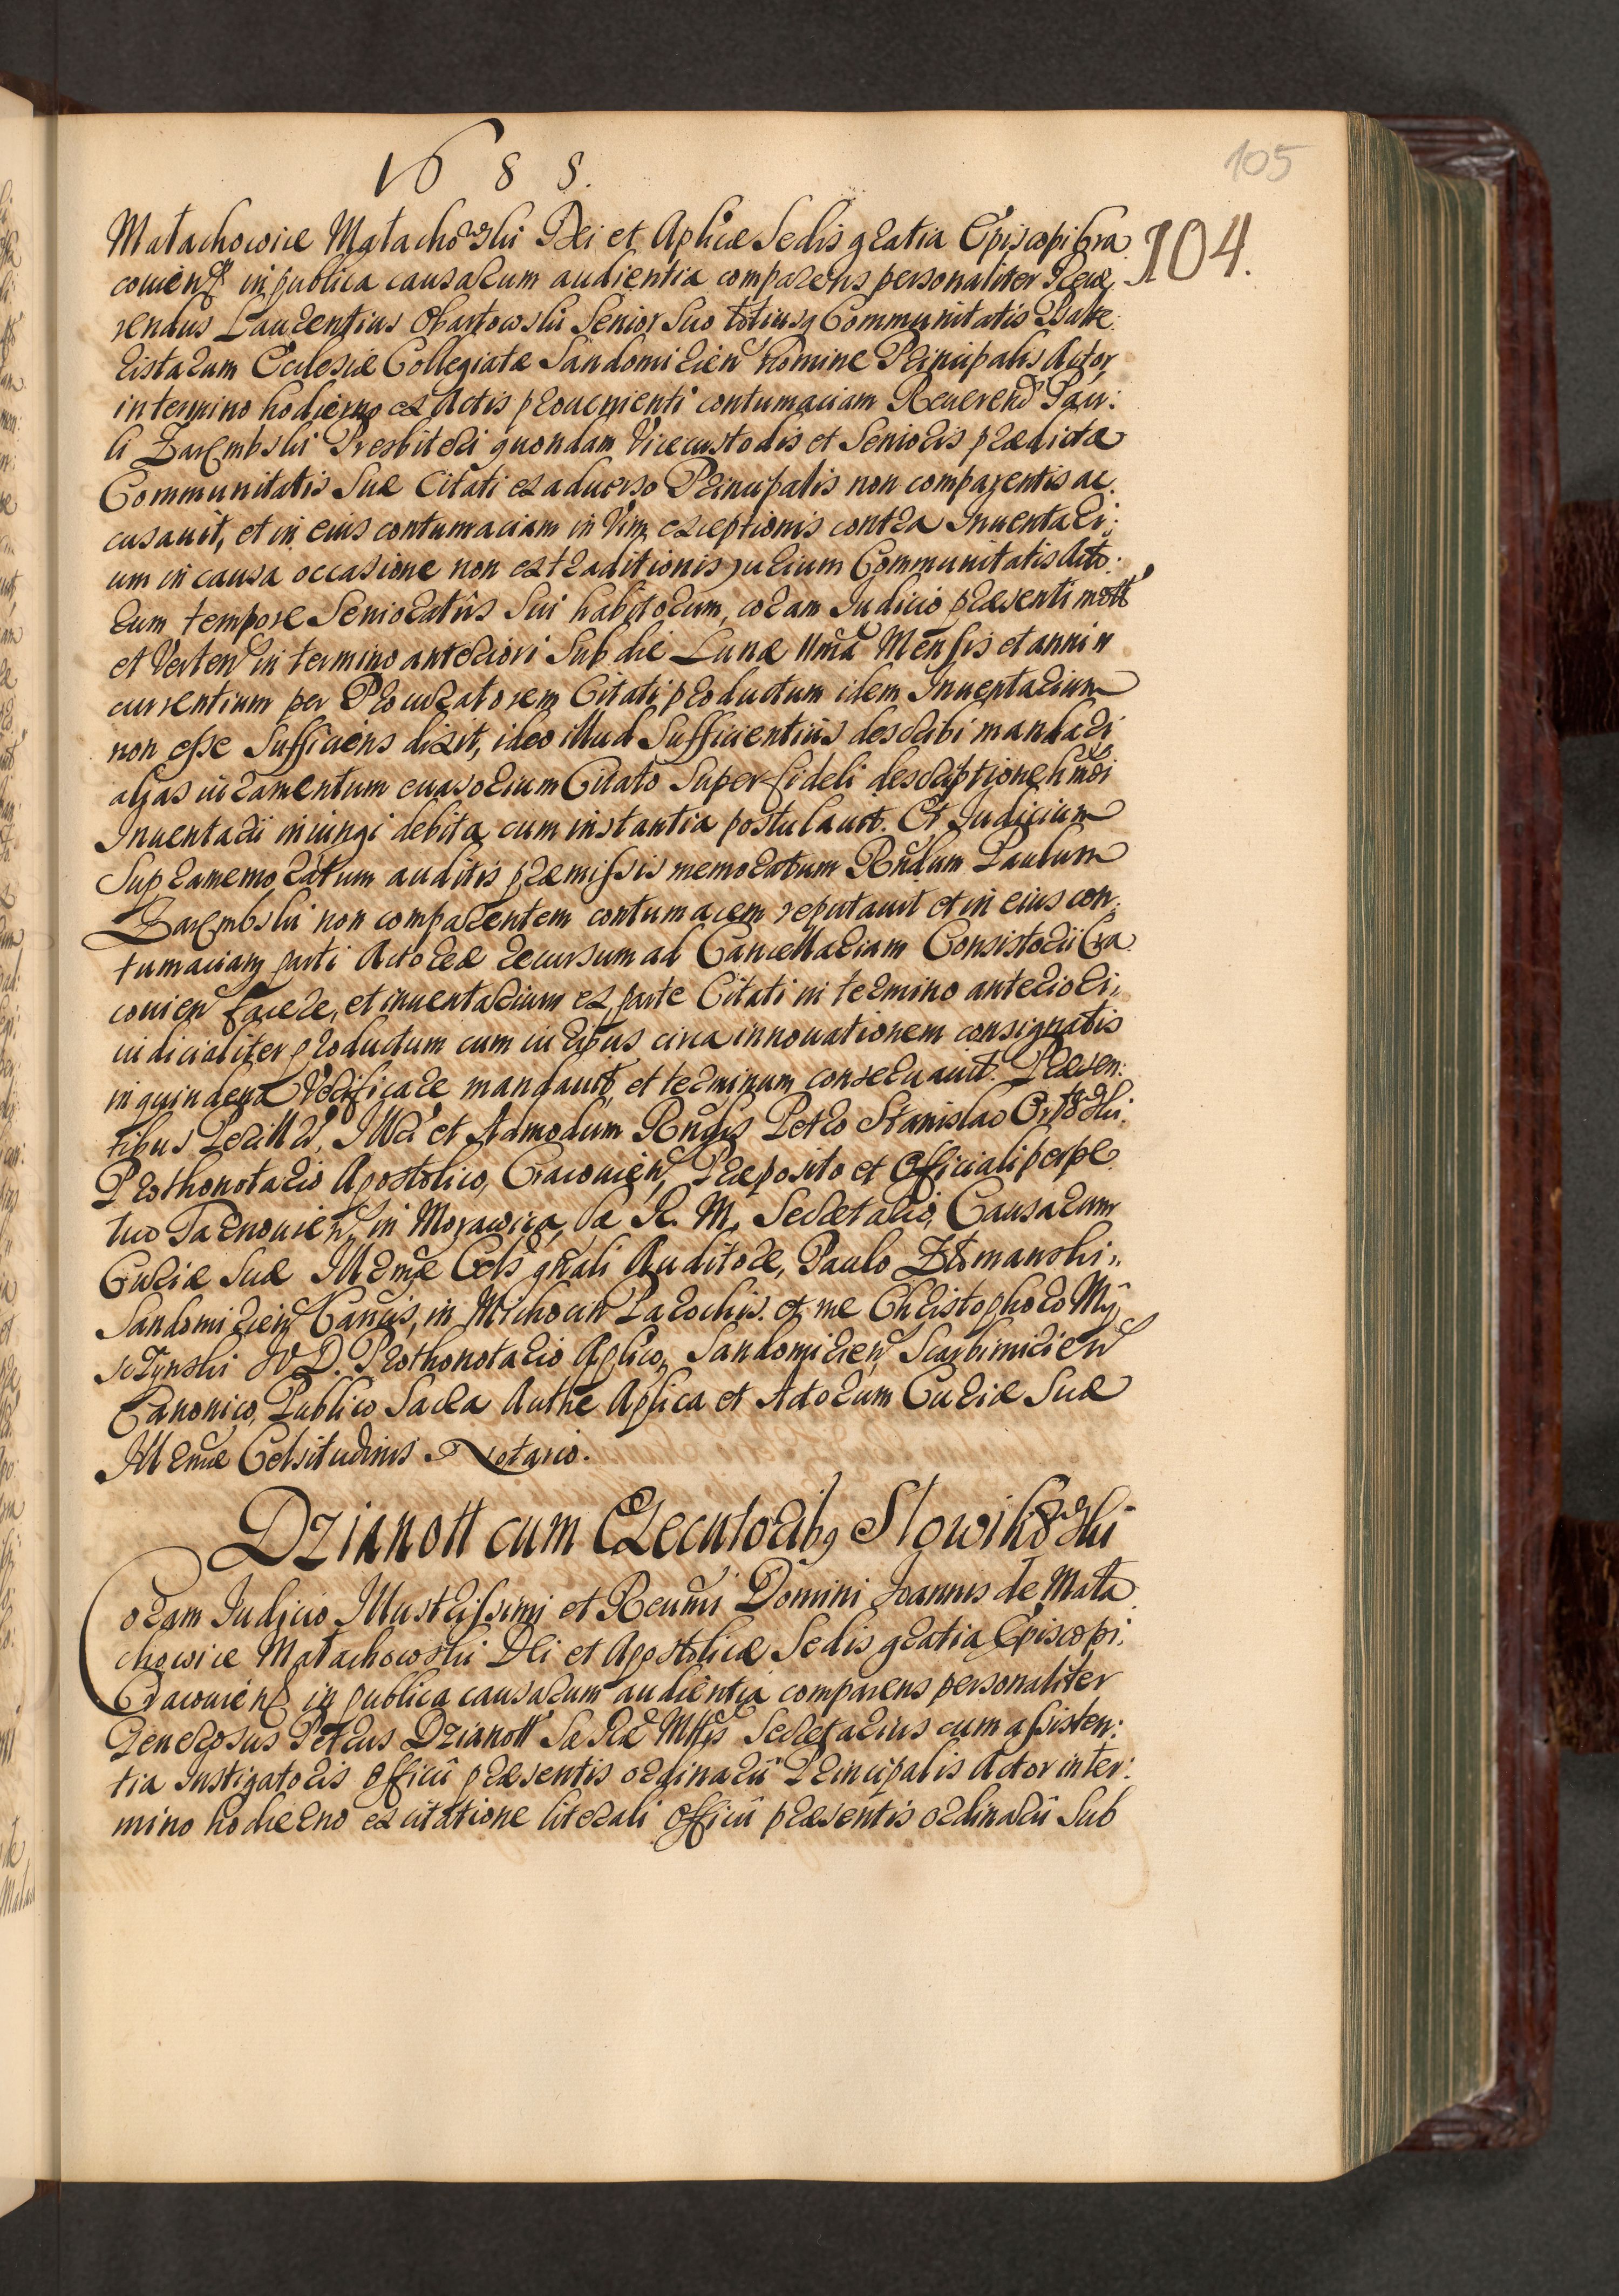 1688.
105
104.
Małachowice Małachowski Dei et Aplicæ Sedis gratia Episcopi Cra
couien in publica causarum audientia comparens personaliter Reue
rendus Laurentius Obartowski Senior Suo totiusq Communitatis Bacc
ristarum Ecclesiæ Collegiatæ Sandomirien nomine Principalis Actor
in termino hodierno ex Actis proueniénti contumaciam Reuerend Pau:
li Zarembski Presbiteri quondam Vicecustodis et Senioris prædictæ
Communitatis Suæ Citati ex aduerso Principalis non comparentis ac:
cusauit, et in eius contumaciam in Vim exceptionis contra Inuentari:
um in causa occasione non extraditionis jurium Communitatis Acto:
rum tempore Senioratûs Sui habitorum, coram Judicio præsenti mott
et Verten in termino anteriori Sub die Lunæ 11ma Mensis et anni
currentium per Procuratorem Citati productum idem Inuentarium
non esse Sufficiens dixit, ideo illud Sufficientiûs describi mandari
alias iuramentum euasorium Citato Super fideli descriptione hmõi
Inuentarii iniungi debita cum instantia postulauit. Et Judicium
Supramemoratum auditis præmissis memoratum Rndum Paulum
Zarembski non comparentem contumacem reputauit et in eius con:
tumaciam parti Actoreæ recursum ad Cancellariam Consistorii Cra
couien facere, et inuentarium ex parte Citati in termino anteriori,
iudicialiter productum cum iuribus circa innouationem consignatis
in quindena Verificare mandauit, et terminum conseruauit. Præsen:
tibus Perilld, Illd et Admodum Rndis Petro Stanislao Orłowski
Prothonotario Apostolico, Cracouien, Præposito et Officiali perpe
tuo Tarnouien, in Morawica, Sæ R. M. Secretario, Causarum
Curiæ Suæ Illrmæ Cels gnali Auditore, Paulo Zymanski,
Sandomirien Cancis, in Michocin Parochis. et me Christophoro My
sczynski JVD. Prothonotario Aplico, Sandomirien Scarbimirien
Canonico, Publico Sacra Authe Aplica et Actorum Curiæ Suæ
Illrmæ Celsitudinis Notario.
Dzianott cum Executorib9 Słowikowski
Coram Judicio Illustrissimi et Reumi Domini Joannis de Mała
chowice Małachowski Dei et Apostolicæ Sedis gratia Episcopi
Cracouien in publica causarum audientia comparens personaliter
Generosus Petrus Dzianott Sæ Ræ Mttis Secretarius cum assisten:
tia Instigatoris Officii præsentis ordinarii Principalis Actor in ter:
mino hodierno ex citatione literali Officii præsentis ordinarii Sub